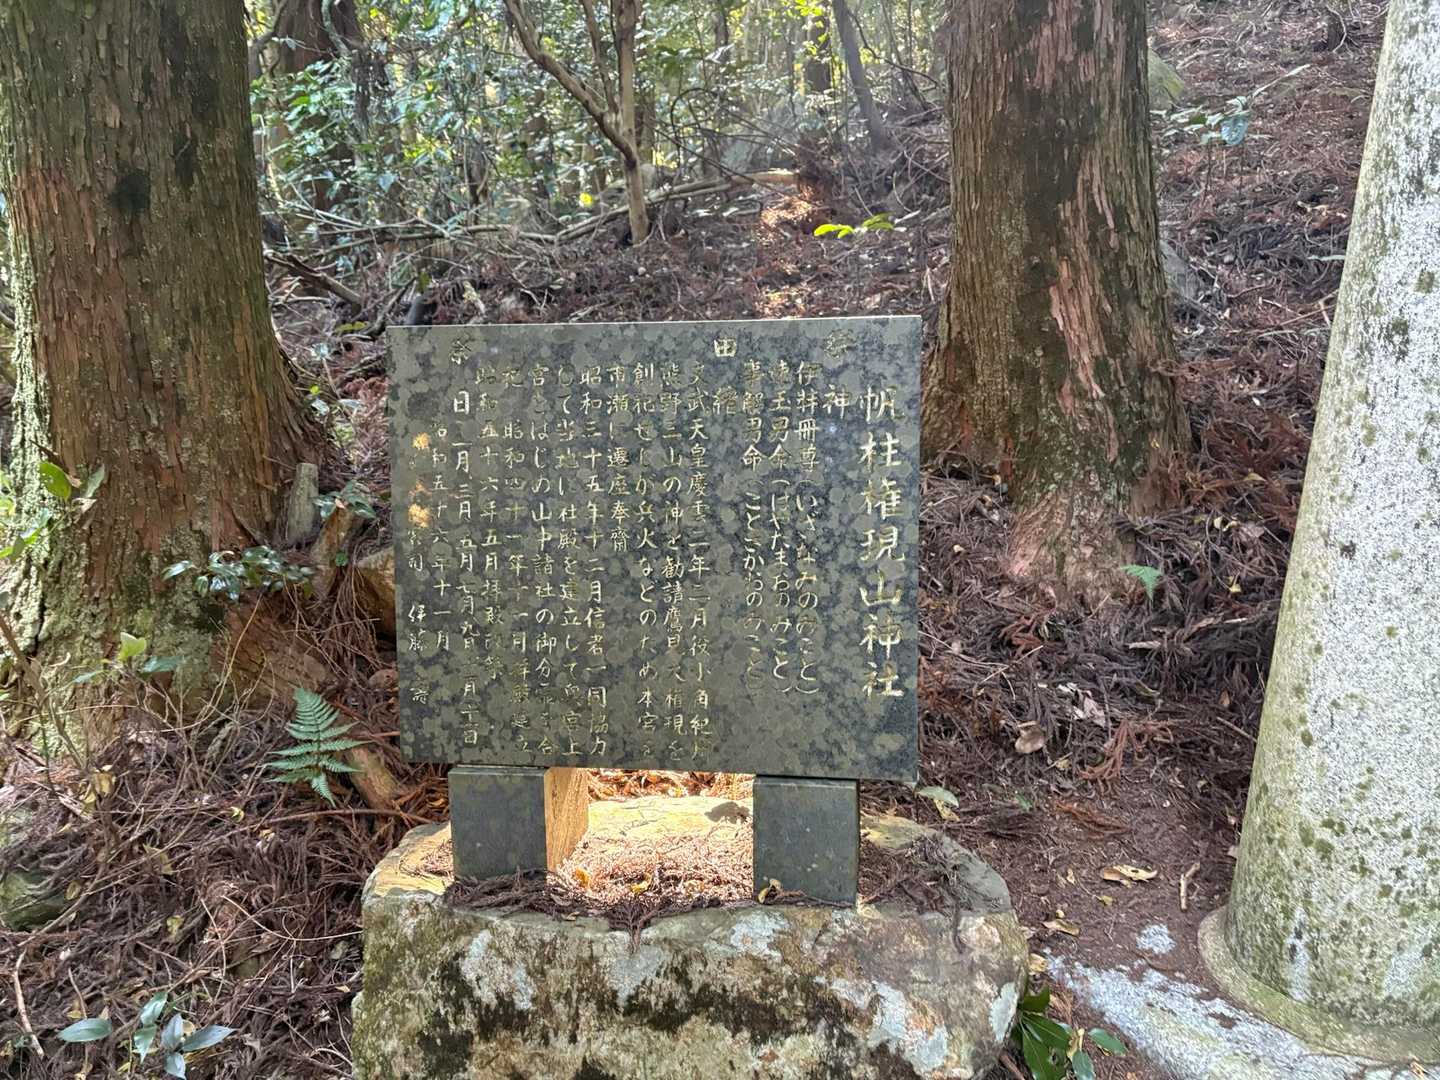 帆柱権現山神社
祭神
伊弉冊尊(いざなみのみこと)
速玉男命(はやたまおのみこと)
事解男命(ことさかおのみこと)
由緒
文武天皇慶雲二年二月役小角紀州
熊野三山の神を勧請鷹見大権現を
創祀せしが兵火などのため本宮を
市瀬に遷座奉齋
昭和三十五年十二月信者一同協力
して当地に社殿を建立して奥宮上
宮をはじめ山中諸社の御分霊を合
祀 昭和四十一年十一月拝殿建立
昭和五十六年五月拝殿改築
祭日 二月 三月 五月 七月 九月 十二月
昭和五十六年十一月
宮司 伊藤